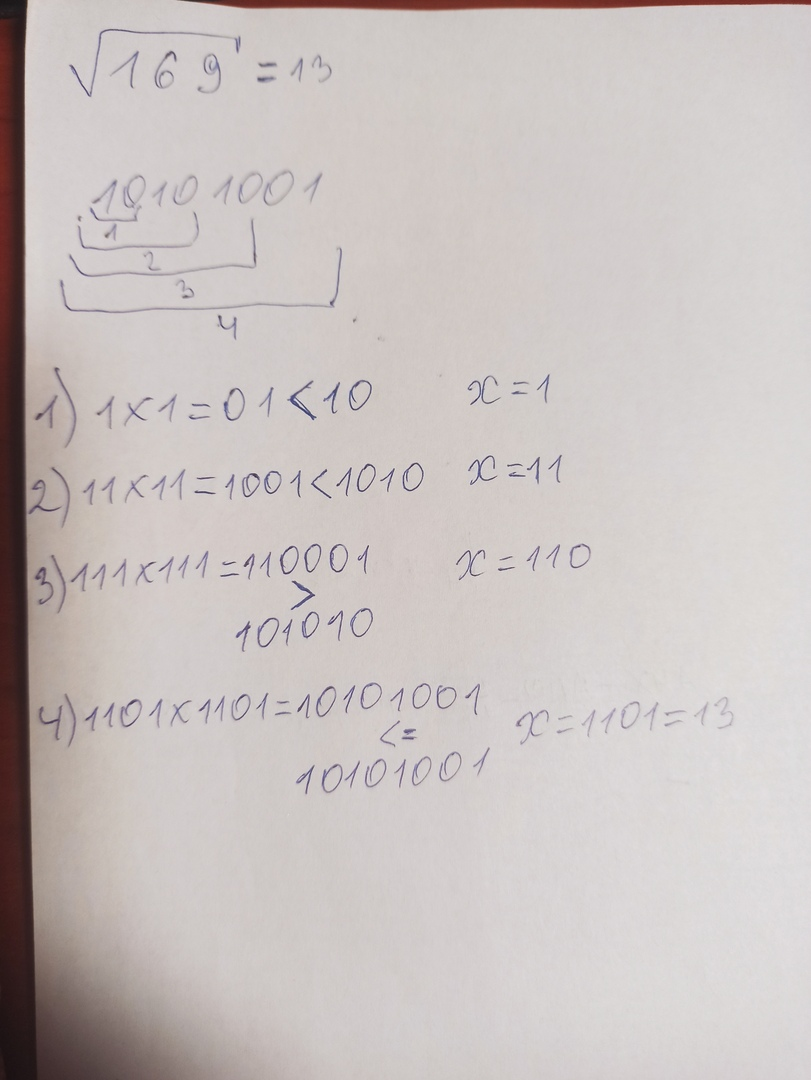 √169 = 13
10101001
1
2
3
4
1) 1×1=01<10 x=1
2) 11×11=1001<1010 x=11
3) 111×111=110001 x=110
>
101010
4) 1101×1101=10101001 x=1101=13
<=
10101001